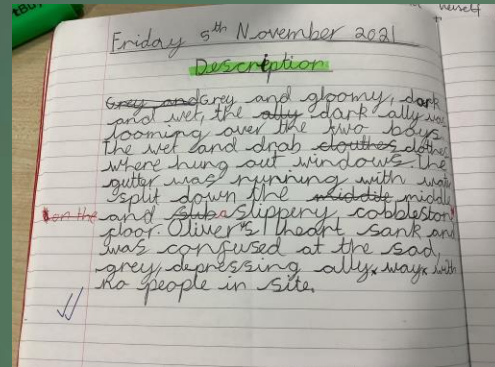 herself
Friday 5th November 2021
Description
Grey and Grey and gloomy, dark
and wet, the ally dark ally was
looming over the two boys
the wet and drab clouthes clothes
where hung out windows. the
gutter was running with wate
split down the middile middle
on the and slub a slippery cobbleston
floor. Oliver's heart sank and
was confused at the sad,
grey, depressing ally way with
no people in site.